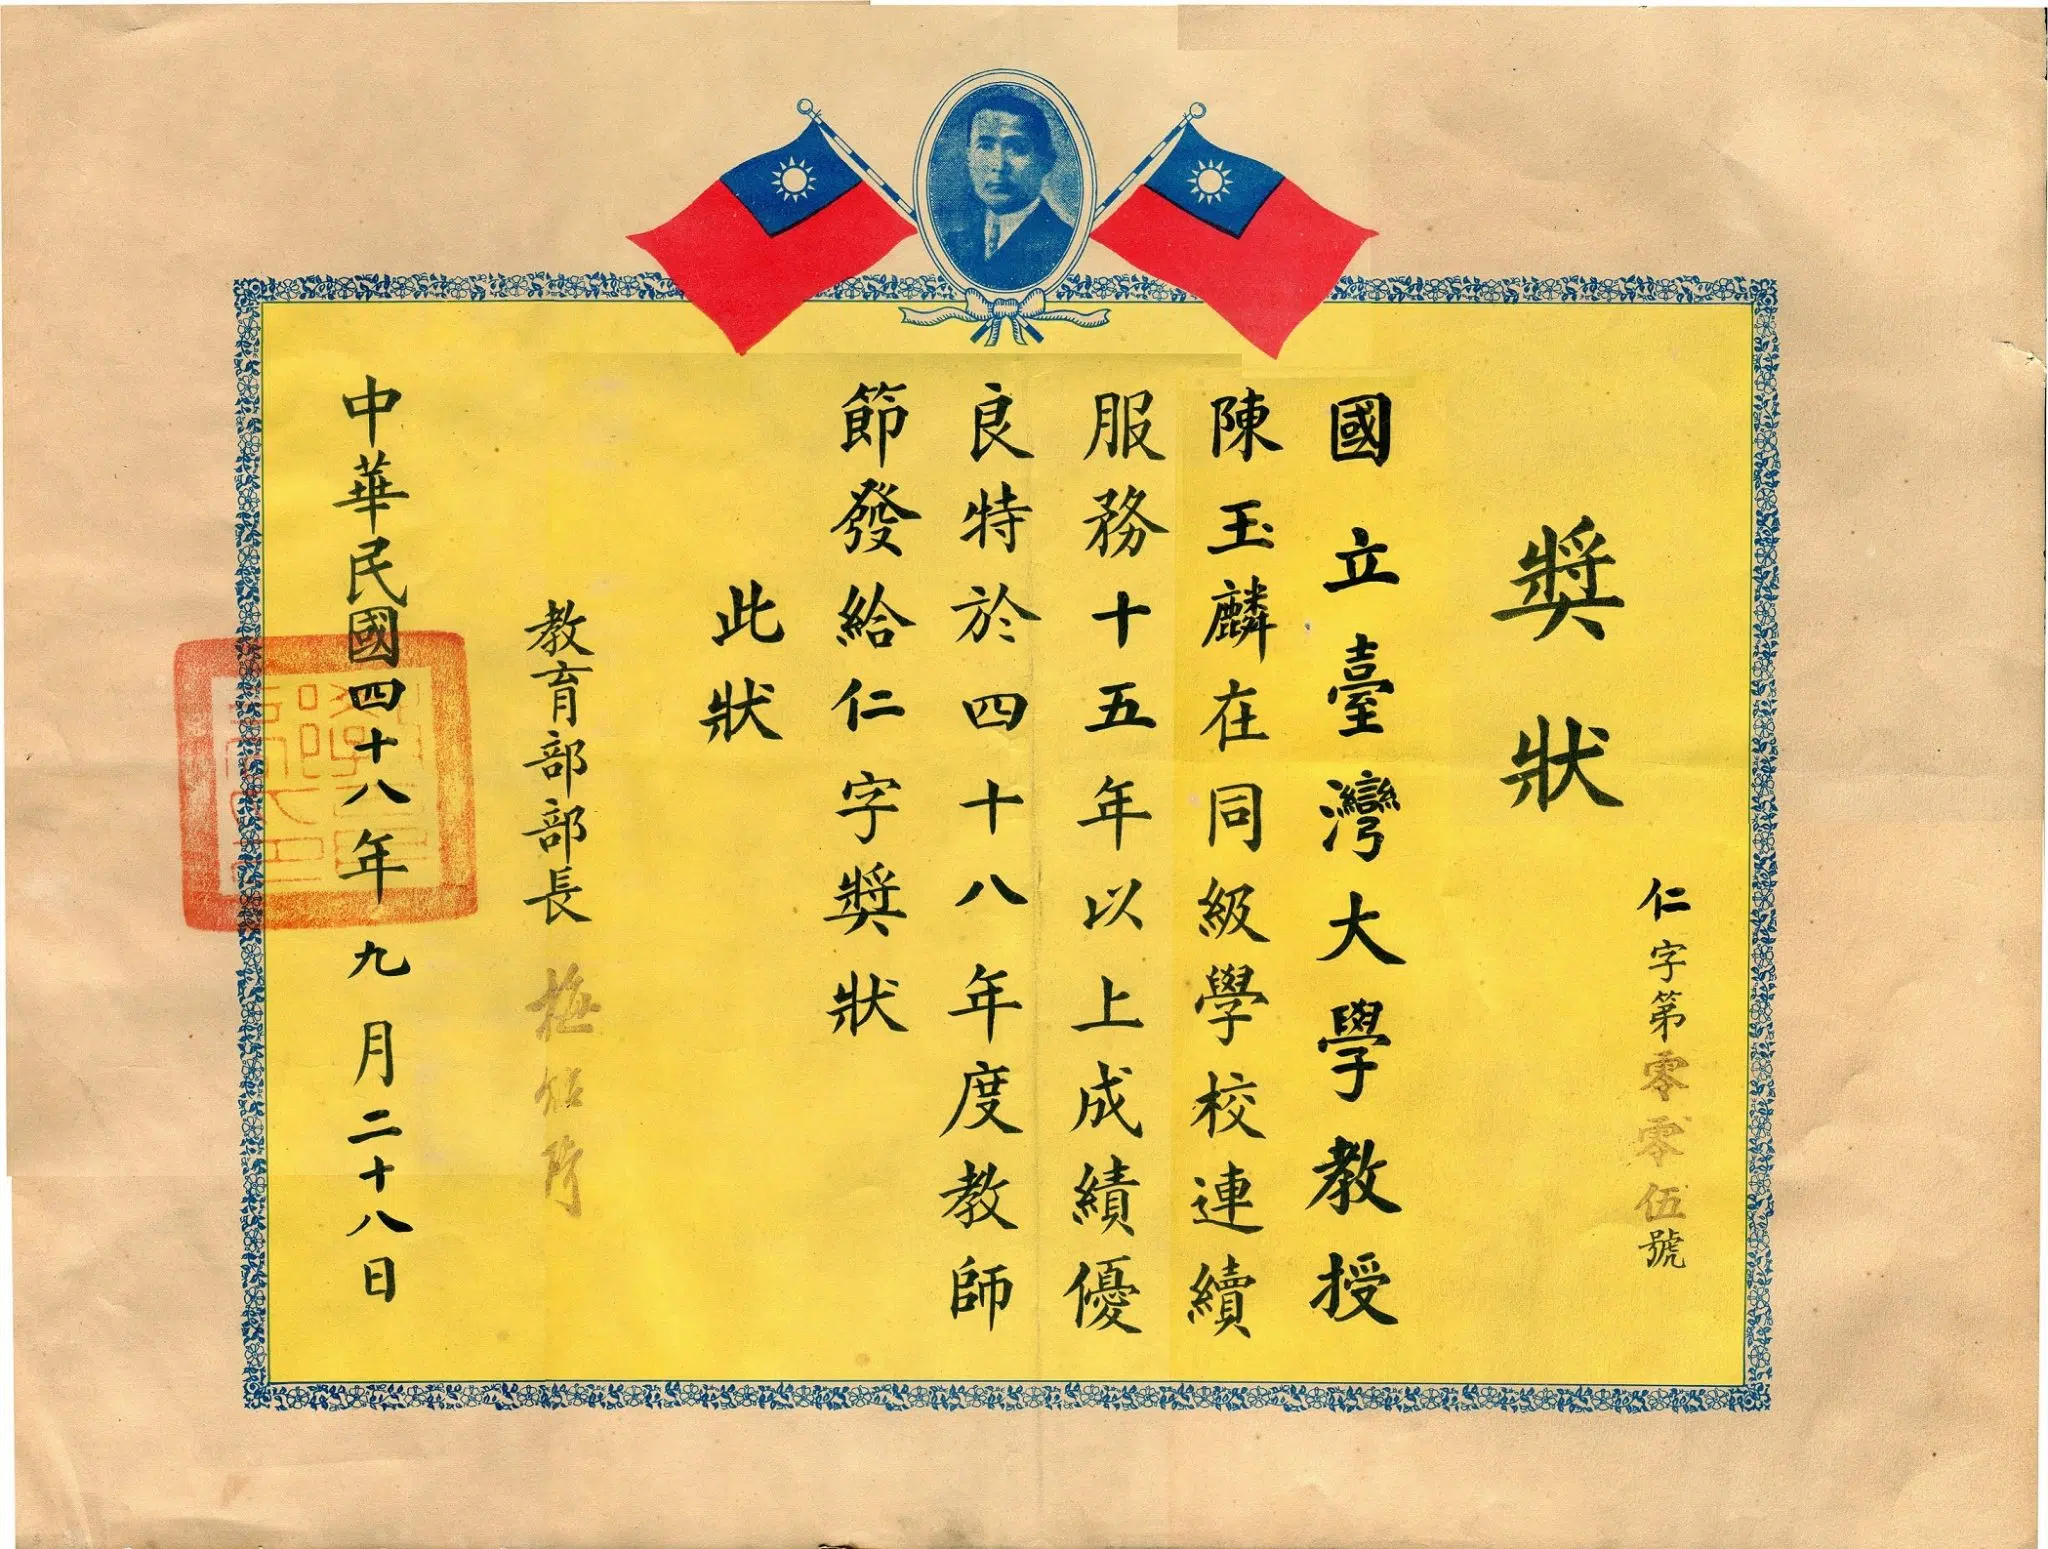 仁字第零零伍號
獎狀
國立臺灣大學教授
陳玉麟在同級學校連續
服務十五年以上成績優
良特於四十八年度教師
節發給仁字獎狀
此狀
教育部部長 梅貽琦
中華民國四十八年九月二十八日